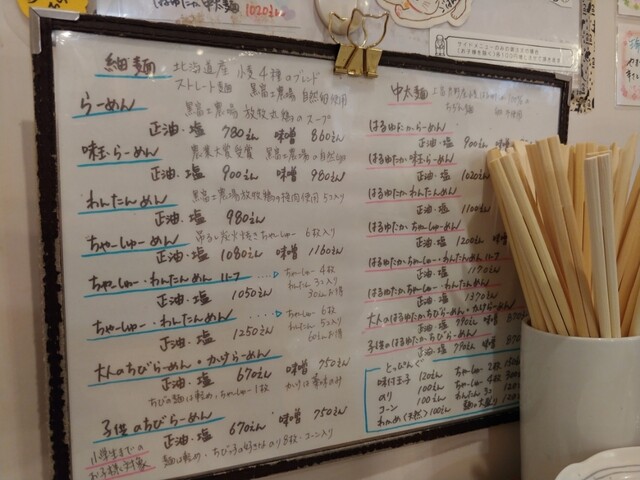 中太麺 1020えん
細麺 北海道産 小麦4種のブレンド
ストレート麺 黒富士農場 自然卵使用
らーめん 黒富士農場 放牧丸鶏のスープ
正油・塩 780えん 味噌 860えん
味玉らーめん 農業大賞受賞 黒富士農場の自然卵
正油・塩 900えん 味噌 980えん
わんたんめん 黒富士農場放牧鶏の挽肉使用 5コ入り
正油・塩 980えん
ちゃーしゅーめん 吊るし炭火焼きちゃーしゅー 6枚入り
正油・塩 1080えん 味噌 1160えん
ちゃーしゅー・わんたんめん ハーフ ちゃーしゅー 4枚
わんたん 3コ入り
正油・塩 1050えん 30えんお得
ちゃーしゅー・わんたんめん ちゃーしゅー 6枚
わんたん 5コ入り
正油・塩 1250えん 60えんお得
大人のちびらーめん・かけらーめん
正油・塩 670えん 味噌 750えん
ちびの麺は軽め、ちゃーしゅー1枚 かけは薬味のみ
子供のちびらーめん
正油・塩 670えん 味噌 750えん
小学生までのお子様対象 麺は軽め・ちびっ子の好きなのり8枚・コーン入り
中太麺
ちぢれ麺
はるゆたからーめん
正油・塩 900えん 味噌
はるゆたか味玉らーめん
正油・塩 1020えん
はるゆたかわんたんめん
正油・塩 1100えん
はるゆたかちゃーしゅーめん
正油・塩 1200えん 味噌
はるゆたかちゃーしゅー・わんたんめん ハーフ
正油・塩 1170えん
はるゆたかちゃーしゅー・わんたんめん
正油・塩 1370えん
大人のはるゆたかちびらーめん・かけらーめん
正油・塩 790えん 味噌 870
子供のはるゆたかちびらーめん
正油・塩 790えん 味噌 870
とっぴんぐ
味付玉子 120えん ちゃーしゅー 2枚
のり 100えん ちゃーしゅー 4枚
コーン 100えん わんたん 3コ
わかめ(天然) 100えん 麺の大盛り